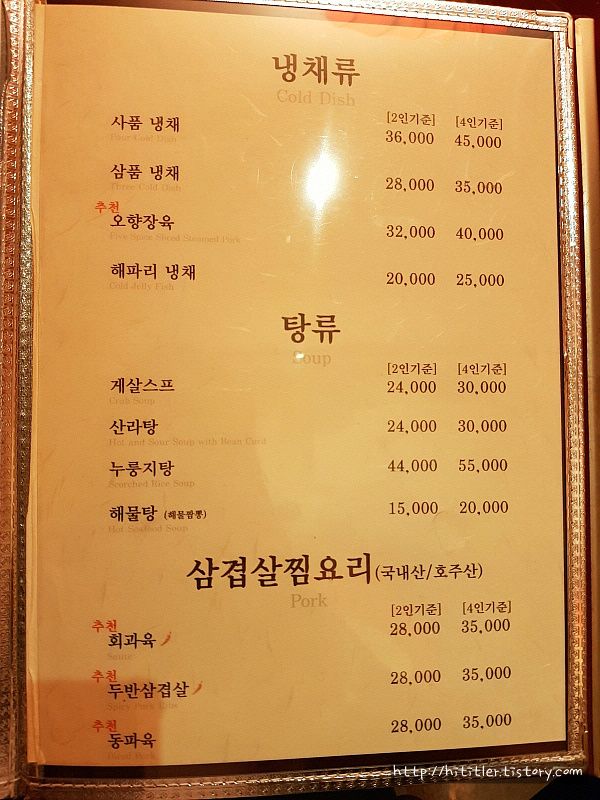 냉채류
Cold Dish
[2인기준] [4인기준]
사품 냉채 36,000 45,000
Four Cold Dish
삼품 냉채 28,000 35,000
Three Cold Dish
추천
오향장육 32,000 40,000
Five Spice Sliced Steamed Pork
해파리 냉채 20,000 25,000
Cold Jelly Fish
탕류
Soup
[2인기준] [4인기준]
게살스프 24,000 30,000
Crab Soup
산라탕 24,000 30,000
Hot and Sour Soup with Bean Curd
누룽지탕 44,000 55,000
Scorched Rice Soup
해물탕 (해물짬뽕) 15,000 20,000
Hot Seafood Soup
삼겹살찜요리(국내산/호주산)
Pork
[2인기준] [4인기준]
추천
회과육 28,000 35,000
추천
두반삼겹살 28,000 35,000
Spicy Pork Ribs
추천
동파육 28,000 35,000
http://hititler.tistory.com